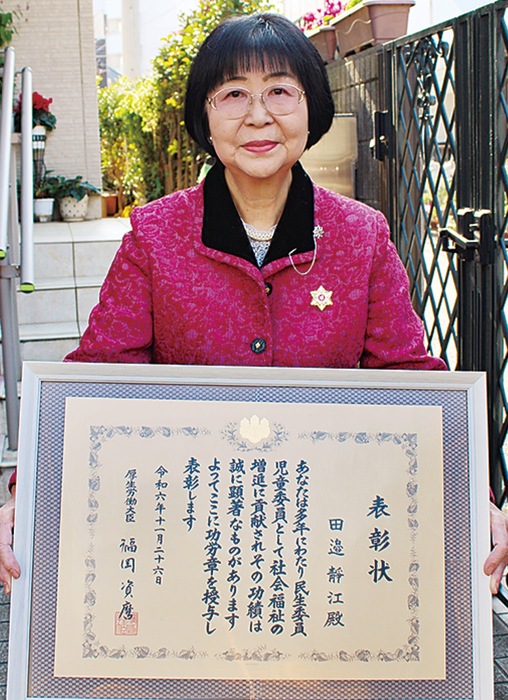 表彰状
田邉 静江殿
あなたは多年にわたり民生委員
児童委員として社会福祉の
増進に貢献されその功績は
誠に顕著なものがあります
よってここに功労章を授与し
表彰します
令和六年十一月二十六日
厚生労働大臣 福岡資麿